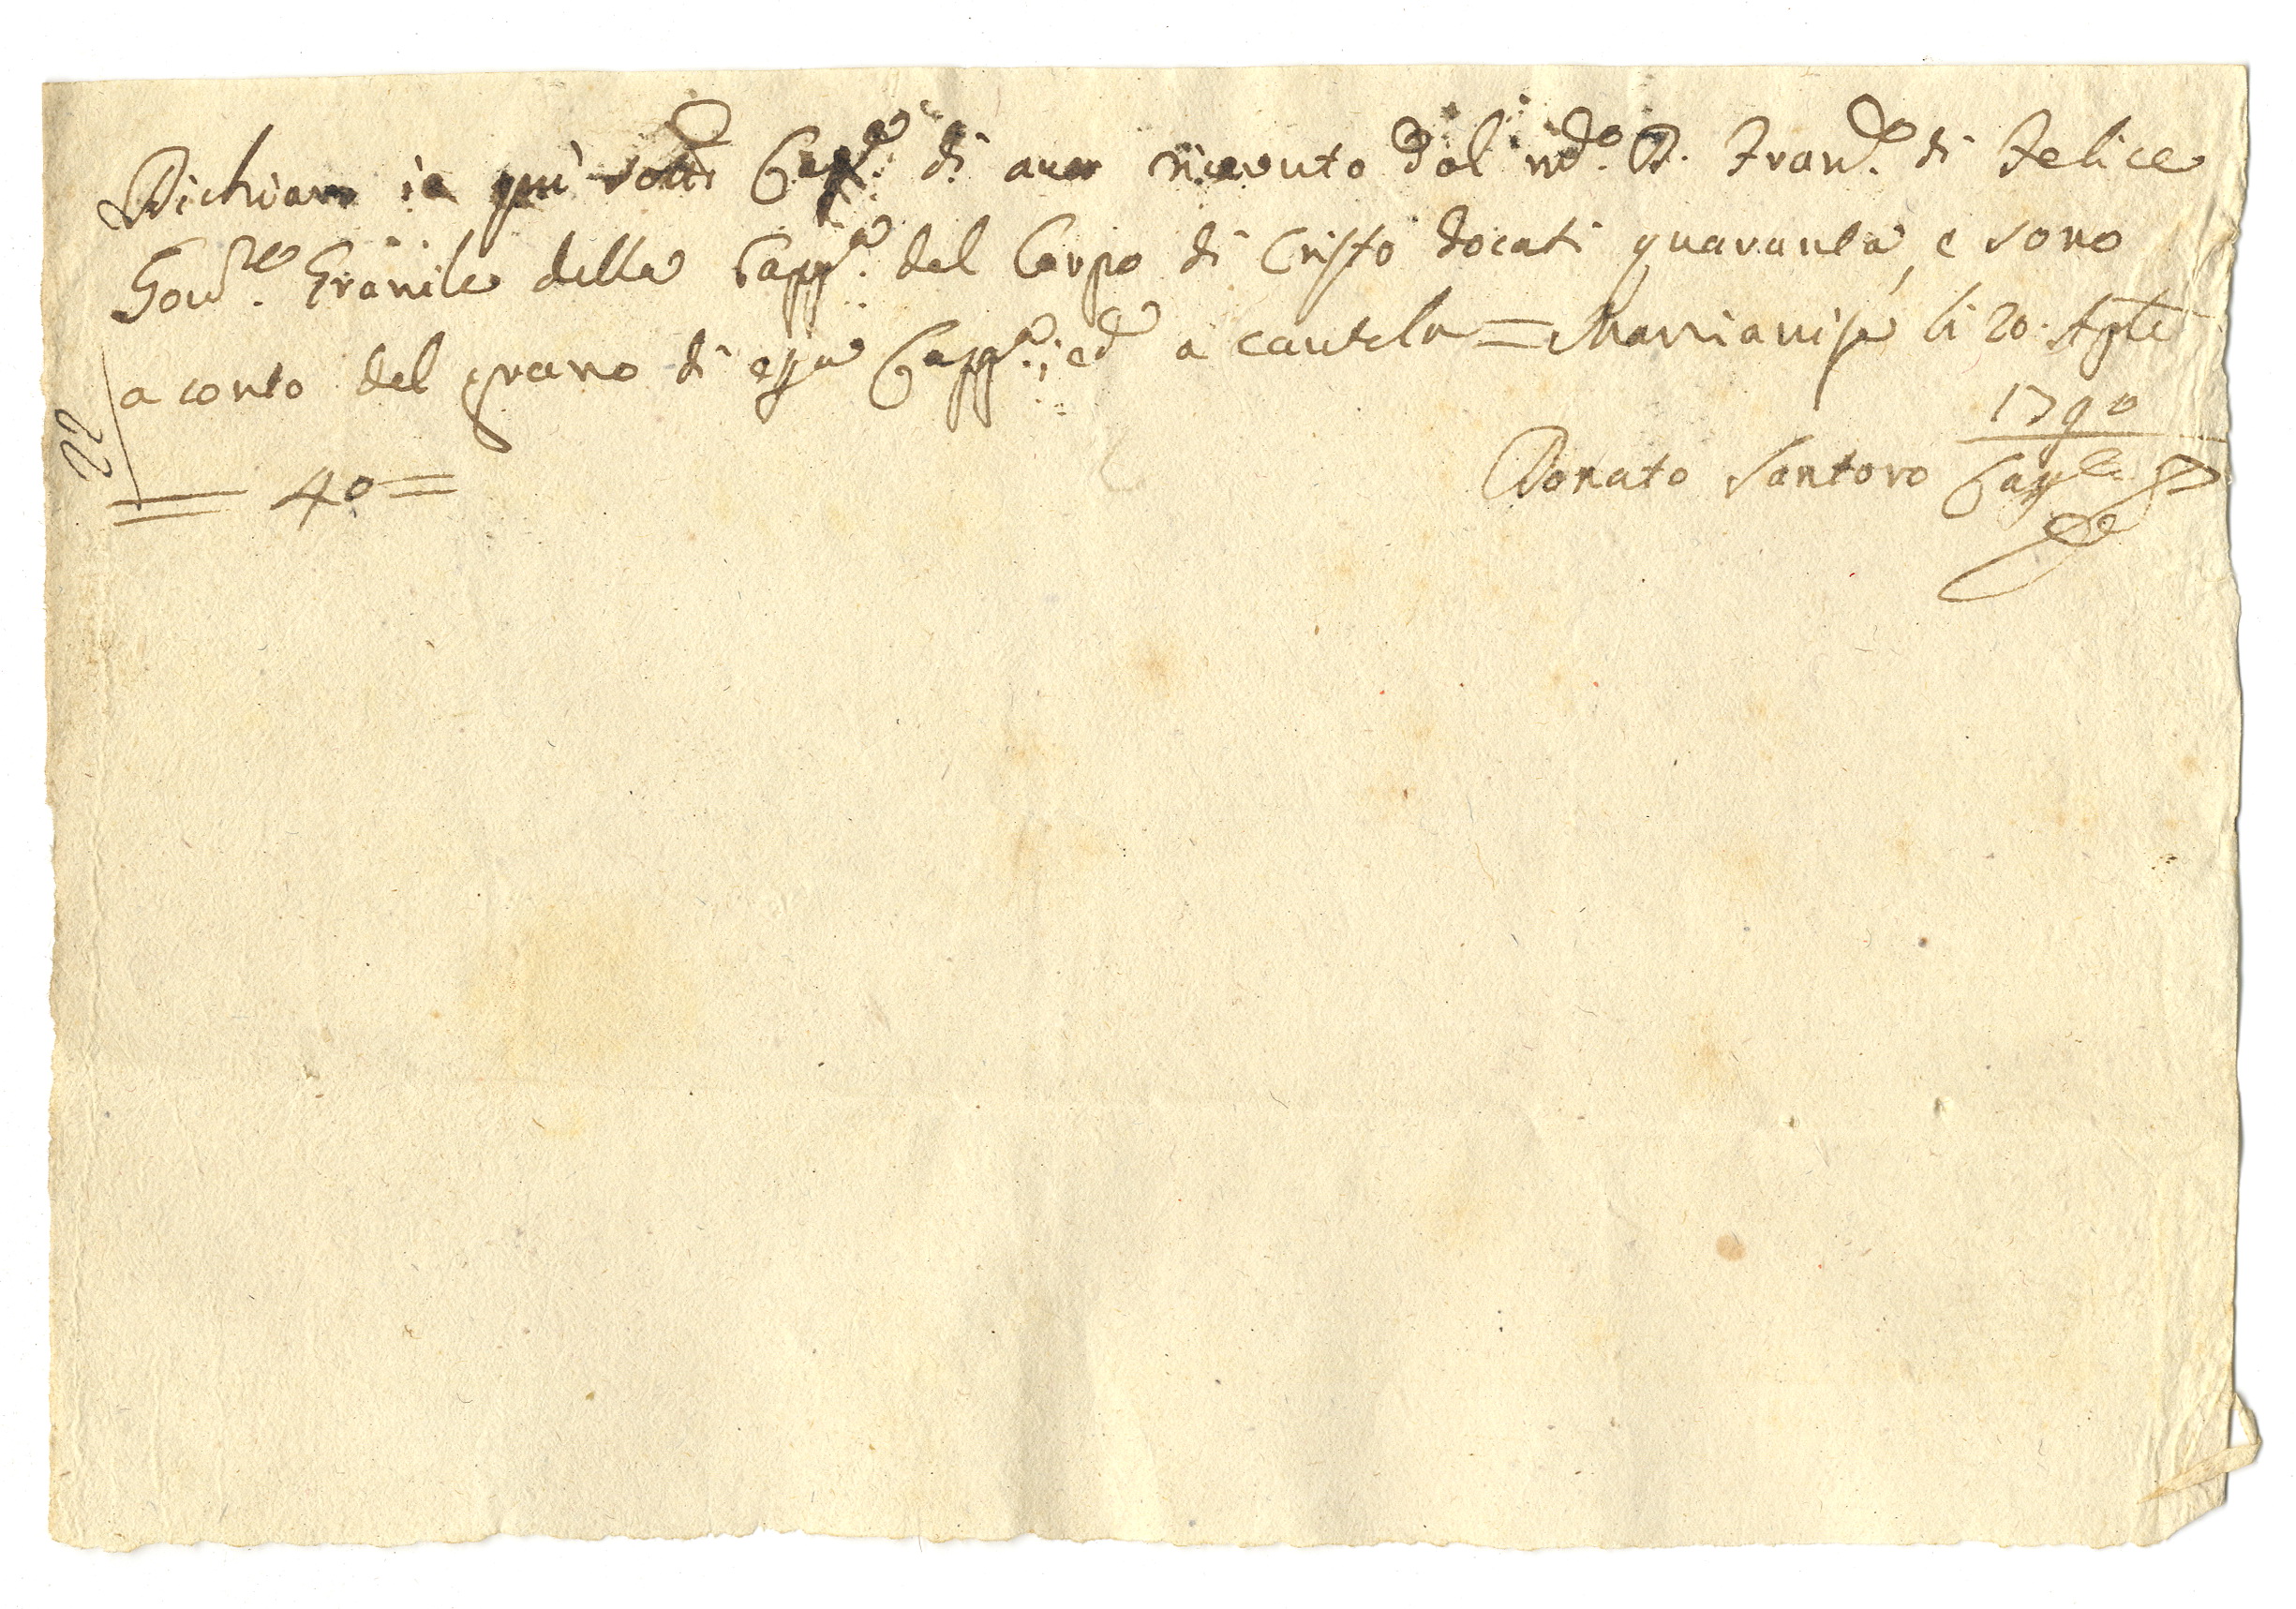 Dichiaro io quì sotto Capp.o di aver ricevuto dal m.do D. Fran.co di Felice
Gov.re Granile della Capp.a del Corpo di Cristo docati quaranta, e sono
a conto del grano di essa Capp.a; ed a cautela = Marcianise li 20. Agto
1790
22 = 40 =
Donato Santoro Capp.